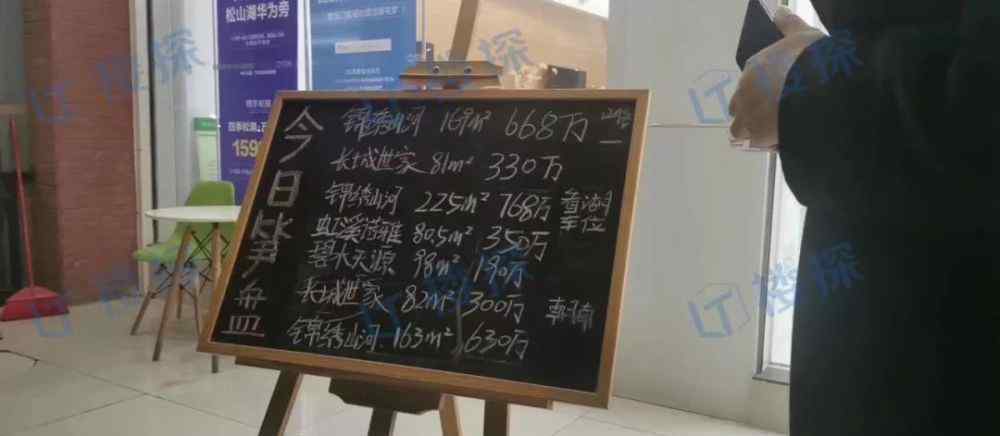 松山湖华为旁
今日笋盘
锦绣山河 169m² 668万
长城世家 81m² 330万
锦绣山河 225m² 768万 看湖
车位
虹溪诺雅 80.5m² 350万
碧水天源 98m² 190万
长城世家 82m² 300万
锦绣山河 163m² 630万
159
楼探
楼探
楼探
楼探
楼探
楼探